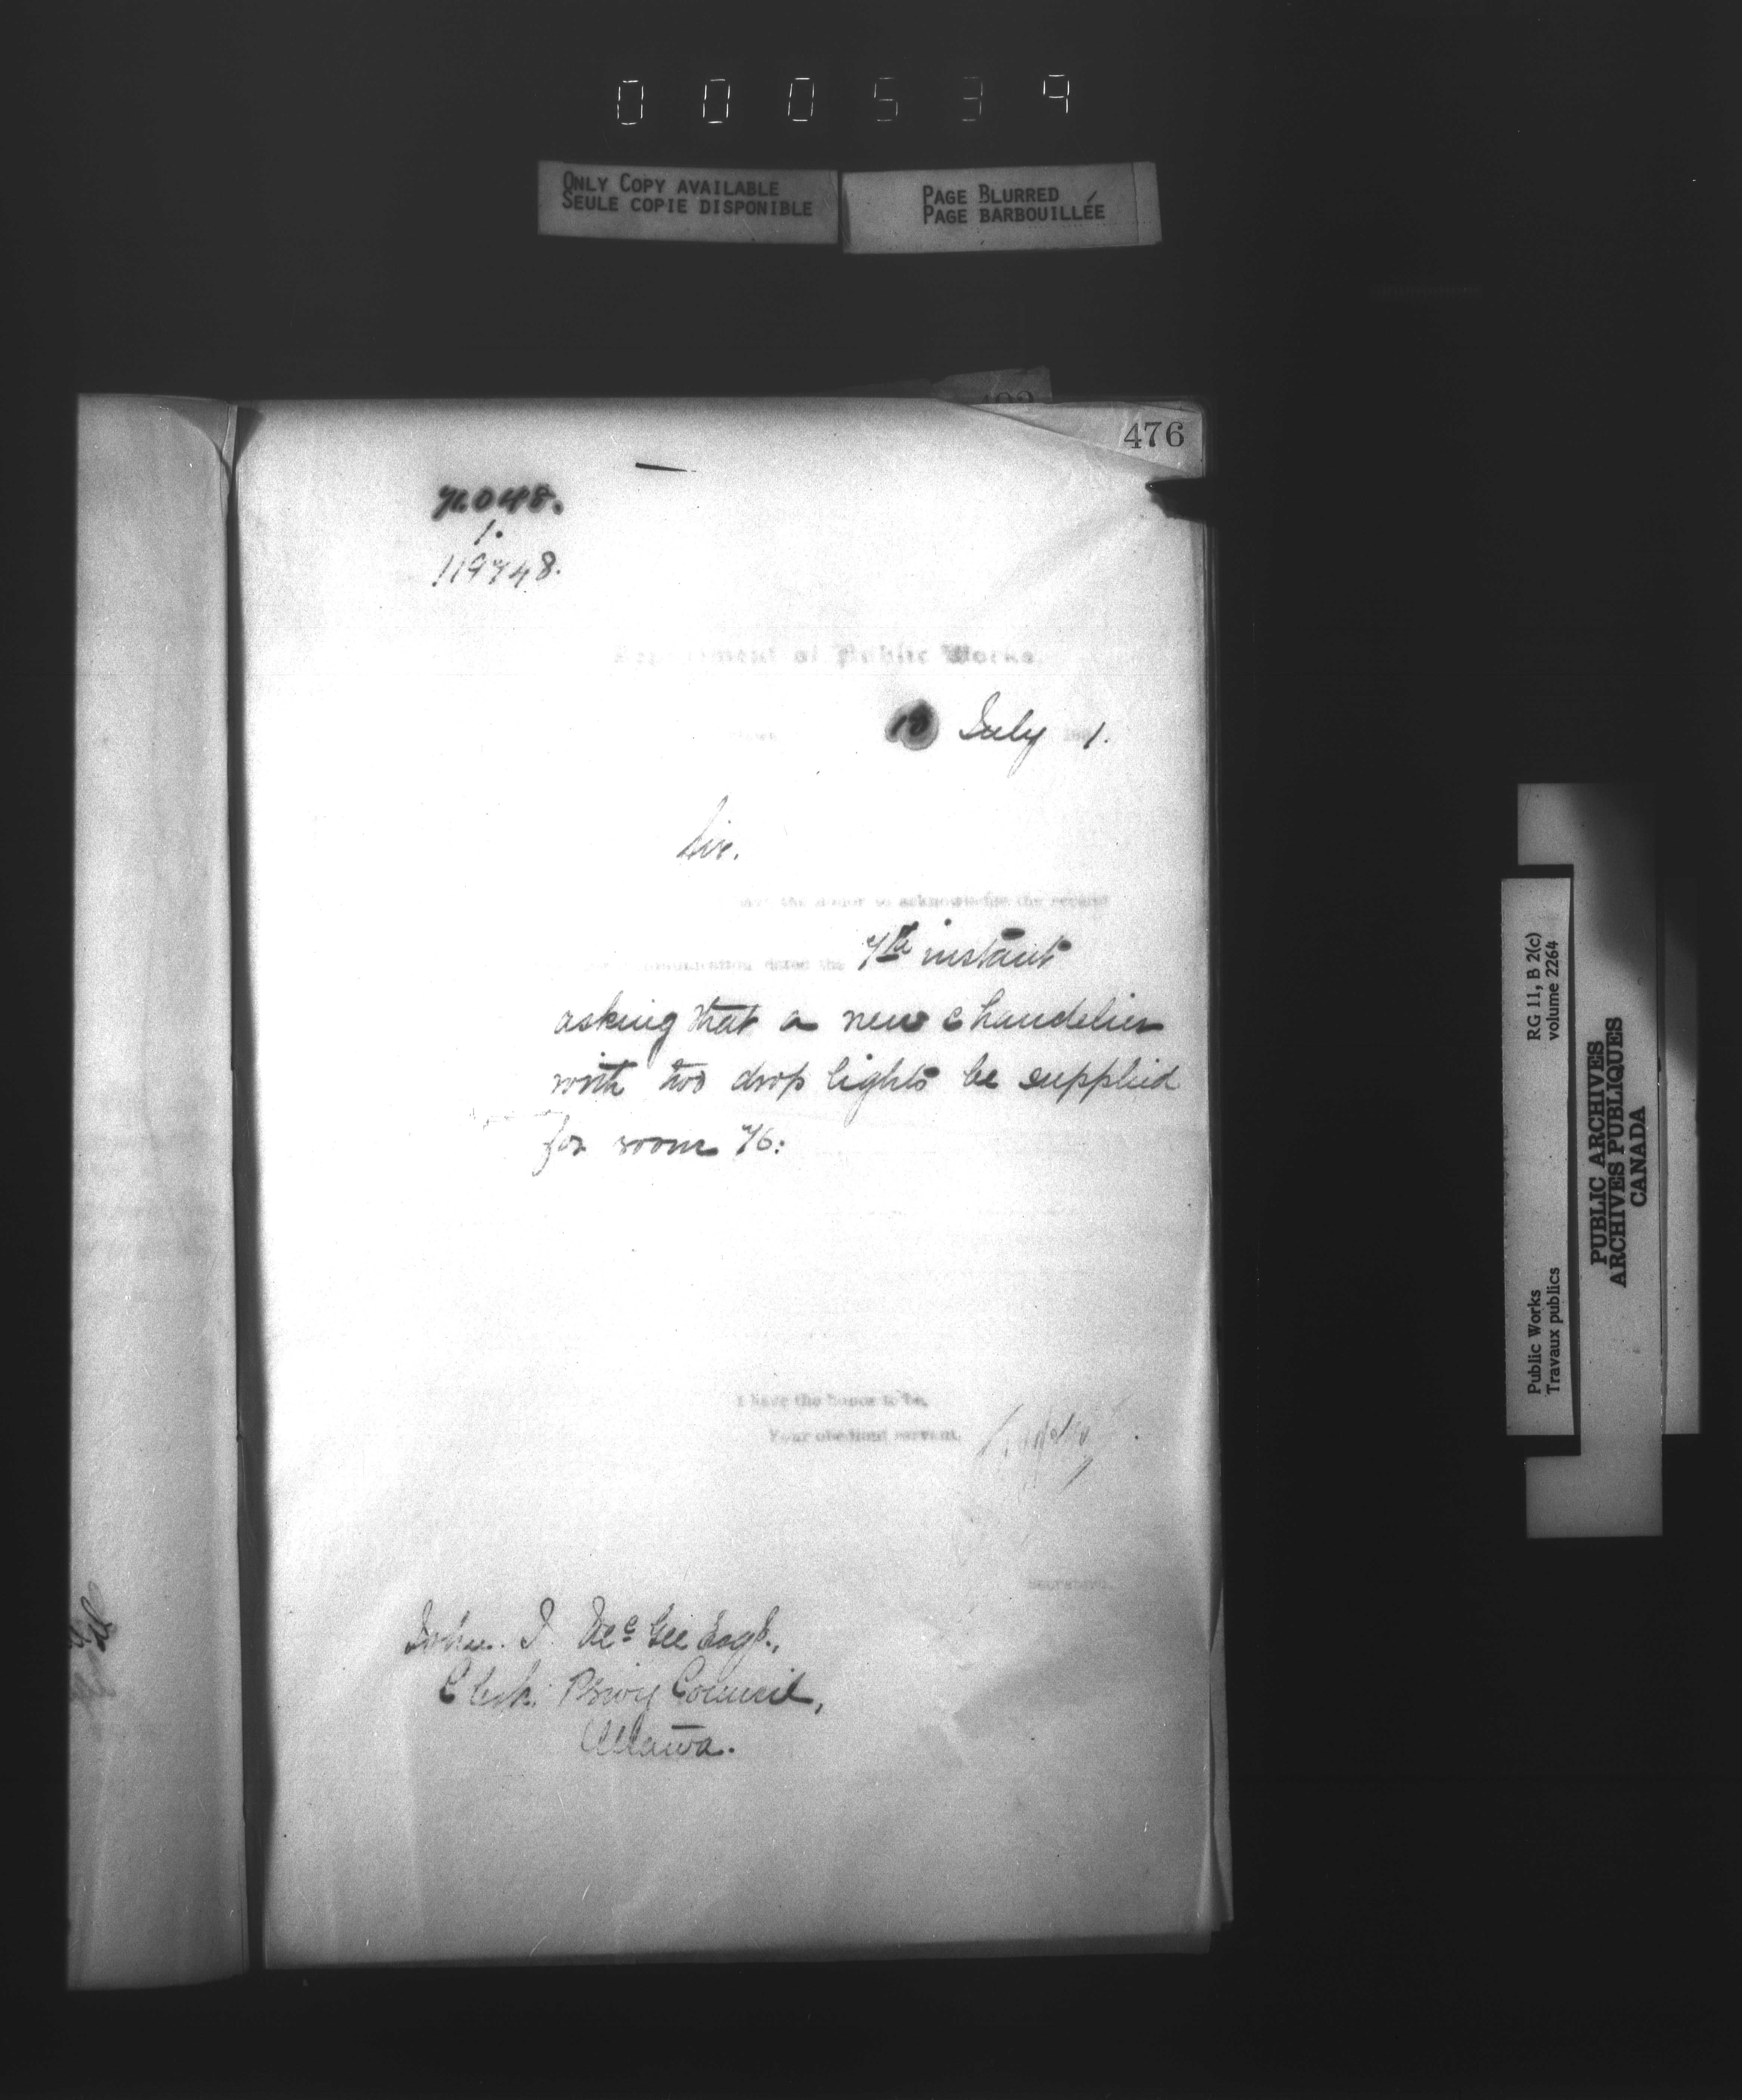 000539
ONLY COPY AVAILABLE
SEULE COPIE DISPONIBLE
PAGE BLURRED
PAGE BARBOUILLÉE
476
1.
119748.
Department of Public Works,
10 July 1.
Sir.
the honor to acknowledge the receipt
communication dated the 7th instant
asking that a new chandelier
with two drop lights be supplied
for room 76:
I have the honor to be,
Your obedient servant,
Secretary.
John J. McGee Esqr.,
Clerk Privy Council,
Ottawa.
RG 11, B 2(c)
volume 2264
Public Works
Travaux publics
PUBLIC ARCHIVES
ARCHIVES PUBLIQUES
CANADA